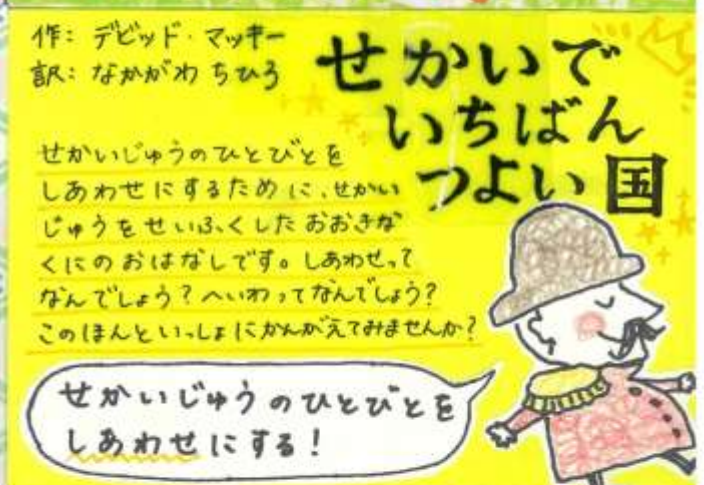 作: デビッド・マッキー
訳: なかがわ ちひろ
せかいで
いちばん
つよい国
せかいじゅうのひとびとを
しあわせにするために、せかい
じゅうをせいふくした おおきな
くにの おはなしです。しあわせって
なんでしょう?へいわってなんでしょう?
このほんといっしょにかんがえてみませんか?
せかいじゅうのひとびとを
しあわせにする!